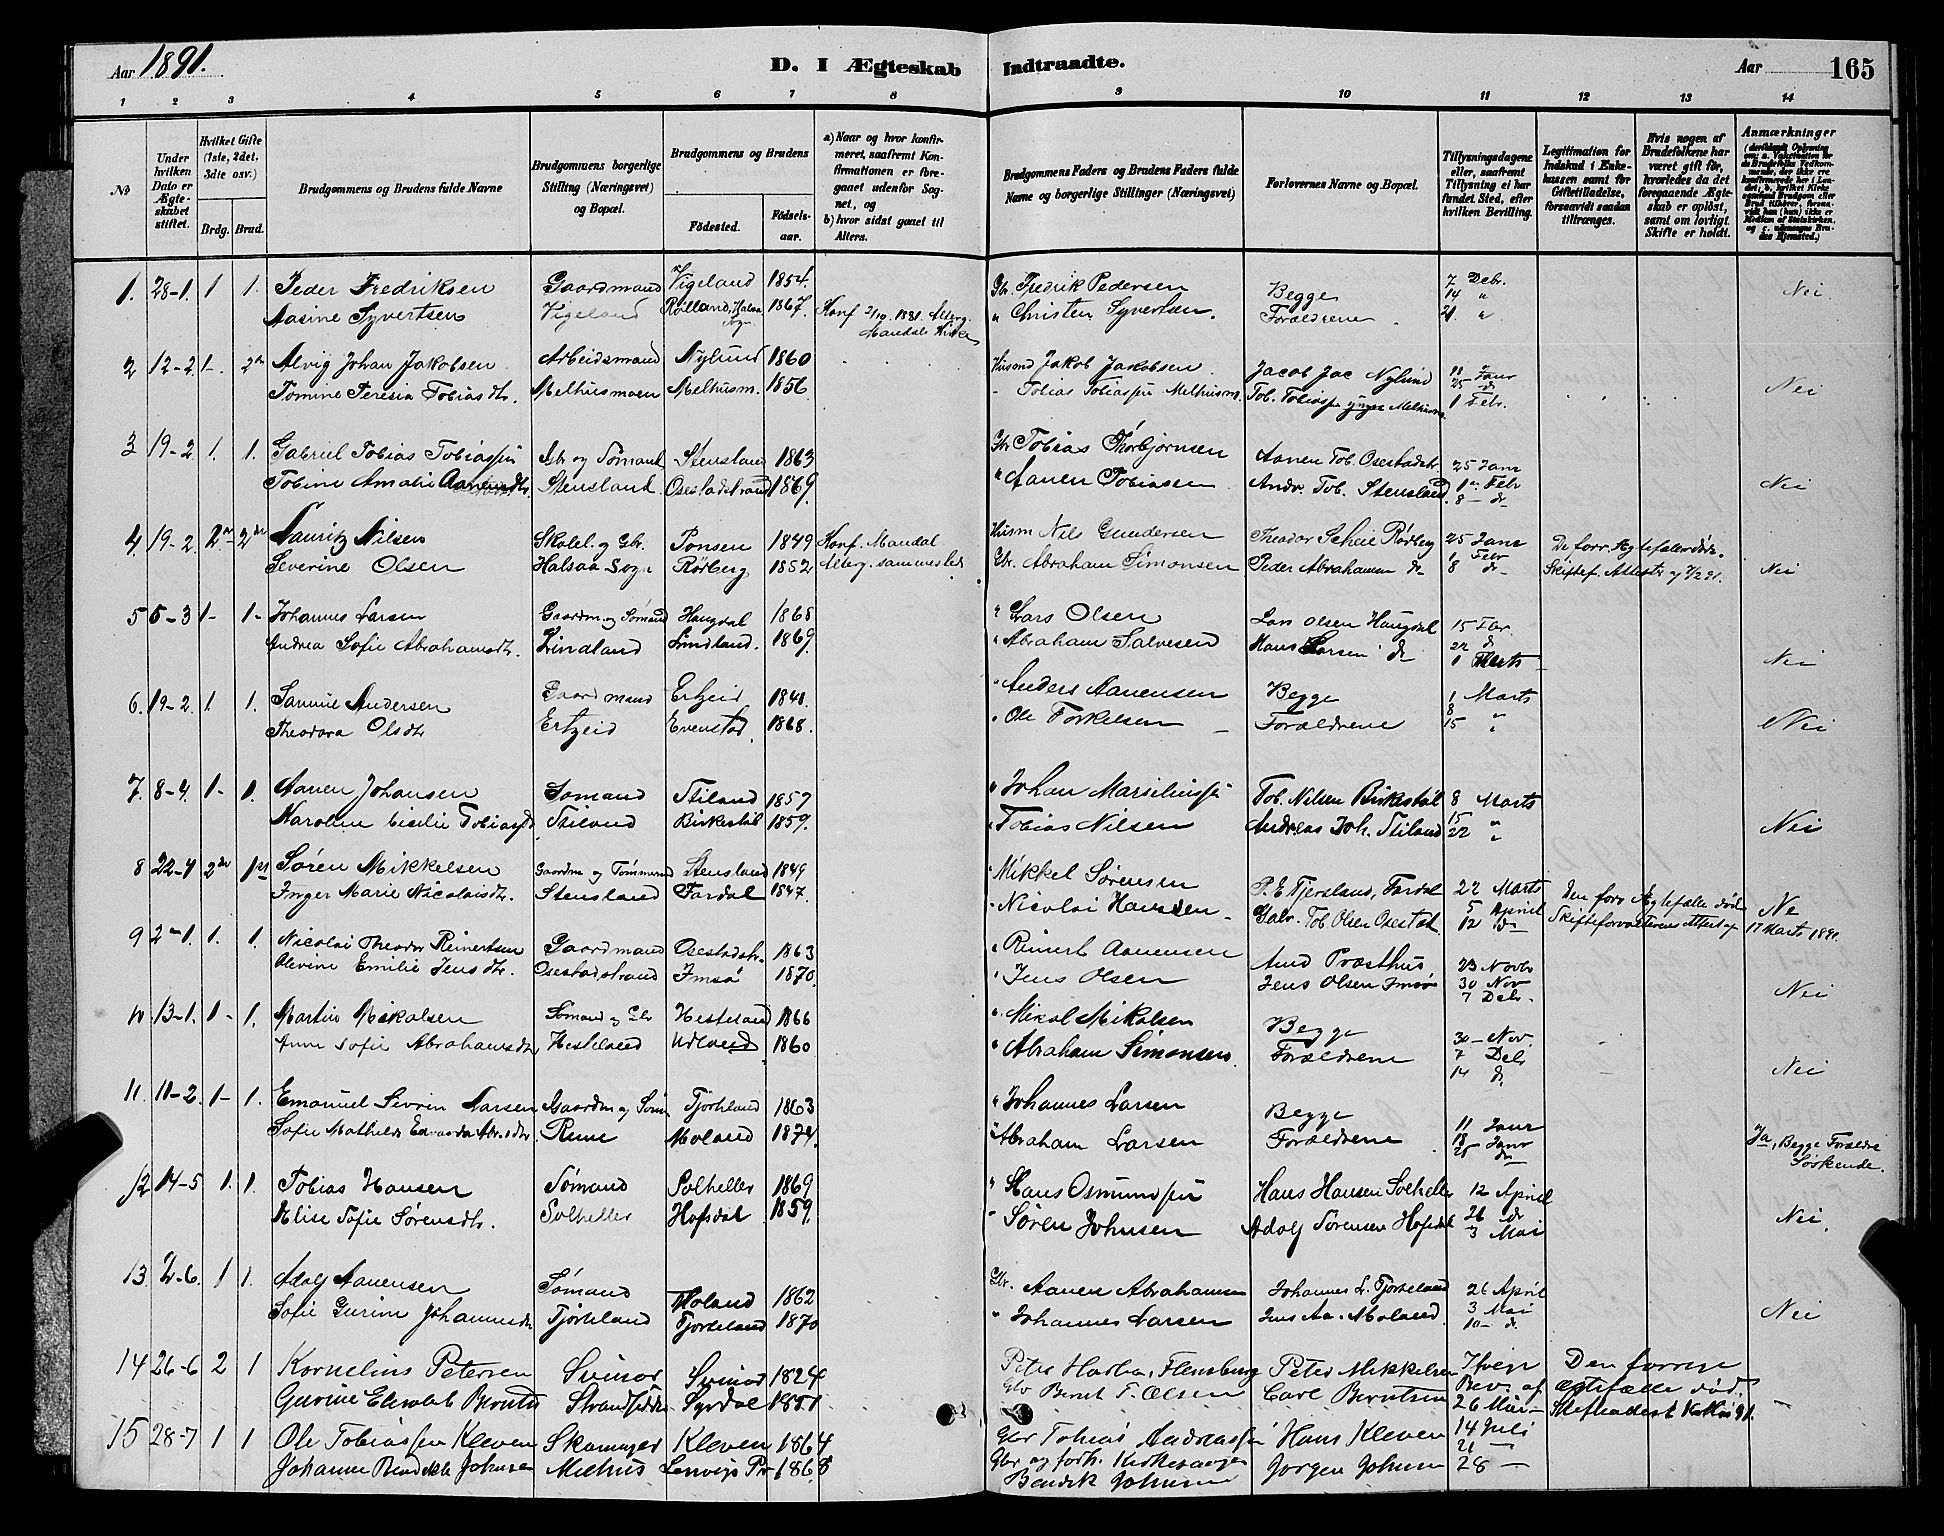 Aar 1891.
D. I Ægteskab Indtraadte.
Aar 165
1 2 3 4 5 6 7 8 9 10 11 12 13 14
No
Under hvilken Dato er Ægteskabet stiftet.
Hvilket Gifte (1ste, 2det, 3die osv.)
Brdg. Brud.
Brudgommens og Brudens fulde Navne
Brudgommens borgerlige Stilling (Næringsvei) og Bopæl.
Brudgommens og Brudens
Fødested. Fødselsaar.
a) Naar og hvor konfirmeret, saafremt Konfirmationen er foregaaet udenfor Sognet, og
b) hvor sidst gaaet til Alters.
Brudgommens Faders og Brudens Faders fulde Navne og borgerlige Stillinger (Næringsvei)
Forlovernes Navne og Bopæl.
Tillysningsdagene eller, saafremt Tillysning ei har fundet Sted, efter hvilken Bevilling.
Legitimation for Indskud i Enkekassen samt for Giftetilladelse, forsaavidt saadan tiltrænges.
Hvis nogen af Brudefolkene har været gift før, hvorledes da det foregaaende Ægteskab er opløst, samt om lovligt Skifte er holdt.
Anmærkninger
1. 28-1. 1 1. Peder Fredriksen Gaardmand Vigeland 1854. Gbr. Fredrik Pedersen Begge 7 Debr. Nei.
Aasine Syvertsen Vigeland Rølland, Halsaa Sogn 1867. Konf 2/10 1881. Alterg. Mandals Kirke " Christen Syvertsen. Forældrene 14 " 21 "
2 12-2 1- 2den Alvig Johan Jakobsen Arbeidsmand Nylund 1860 Husmd Jakob Jakobsen Jacob Jac Nylund 18 Janr
Tomine Teresia Tobiasdtr. Melhusmoen Melhusm. 1856. - Tobias Tobiassen Melhusm. Tob. Tobiassen yngre Melhusm. 25 do 1 Febr. Nei
3 19-2 1. 1. Gabriel Tobias Tobiassen Gbr og Sømand Stensland 1863 Gbr Tobias Thorbjørnsen Aanen Tob. Osestadstr. 25 Janr
Tobine Amalie Aanensdtr. Stensland Osestadstrand 1869. " Aanen Tobiasen Andr. Tob. Stensland 1ste Febr 8 - do Nei
4 19-2 2den 2den Lauritz Nilsen Skolel. og Gbr. Ponsen 1849 Konf. Mandal Husm Nils Gundersen Theodor Scheie Rørberg 25 Janr De forr. Ægtefæller døde.
Severine Olsen Halsaa Sogn Rørberg 1852 Alterg. sammested Gbr. Abraham Simonsen Peder Abrahamsen do 1 Febr 8 do Skiftef. Attester af 7/2 91. Nei
5 5-3 1- 1- Johannes Larsen Gaardm. og Sømand Haugdal 1868 " Lars Olsen Lars Olsen Haugdal 15 Febr.
Andrea Sofie Abrahamsdtr. Lindland Lindland. 1869. " Abraham Salvesen Hans Larsen do 22 do 1 Marts Nei
6. 19-2 1. 1. Samuel Andersen Gaardmand Ertzeid 1848. " Anders Aanensen Begge 1 Marts
Theodora Olsdtr Ertzeid Evenstad 1868. " Ole Torkelsen Forældrene 8 15 " Nei
7. 8-4. 1- 1. Aanen Johansen Sømand Stiland 1857 " Johan Marseliussen Tob. Nilsen Birkestøl 8 Marts
Karoline Cicilie Tobiasdtr Stiland Birkestøl 1859. " Tobias Nilsen Andreas Joh. Stiland 15 " 22 " Nei
8 22-4 2den 1ste Søren Mikkelsen Gaardm og Tømmermd Stensland 1849 " Mikkel Sørensen P. E Tjersland, Fardal 22 Marts Den forr Ægtefælle død
Inger Marie Nicolaisdtr. Stensland Fardal 1847. " Nicolai Hansen - Gabr. Tob. Olsen Osestad. 5 April 12 do Skifteforvalterens Attest af 17 Marts 1891. Nei
9 2-1. 1. 1. Nicolai Theodor Reinertsen Gaardmand Osestadstr. 1863 " Reinert Aanensen And Præsthus, 23 Novbr
Olevine Emilie Jensdtr. Osestadstrand Imsø 1870. " Jens Olsen Jens Olsen Imsø 30 Nov 7 Debr. Nei
10 13-1. 1- 1. Martin Mikalsen Sømand og Gbr Hesteland 1866 " Mikal Mikalsen Begge 30 - Nov.
Anne Sofie Abrahamsdtr Hesteland Udland 1860 " Abraham Simonsen. Forældrene 7 Debr 14 do Nei
11. 11-2. 1- 1. Emanuel Sevrin Larsen Gaardm og Søm Tjorteland 1863 " Johannes Larsen Begge 11 Janr
Sofie Mathilde Abr.sdtr Rume Moland 1874. " Abraham Larsen Forældrene 18 Janr 25 do Ja, Begge Forældre Søskende.
12 14-5 1. 1. Tobias Hansen Sømand Solheller 1869 " Hans Osmundsen Hans Hansen Solheller 12 April
Elise Sofie Sørensdtr. Solheller Hofsdal 1859. " Søren Johnsen Adolf Sørensen Hofsdal 26 do 3 Mai Nei.
13. 2-6. 1 1. Adolf Aanensen Sømand Moland 1862 Gbr. Aanen Abrahamsen Johannes L. Tjorteland 26 April
Sofie Gurine Johannesdtr Tjorteland Tjorteland 1870 " Johannes Larsen Jens Aa. Moland. 3 Mai 10 - do Nei
14 26-6 2 1 Kornelius Petersen Svinør Svinør 1824 Peter Flensburg Peter Mikkelsen Ifølge Den forrige
Gurine Elisabet Berntsdtr Syrdal 1851 Gbr Bernt T. Olsen Carl Berntsen Bev. af 26 Mai - ægtefælle død.
15 28-7 1 1 Ole Tobiassen Kleven Skomager Kleven 1864 Gbr Tobias Andreassen Hans Kleven 14 Juli 21 -
Johanne Bendikte Johnsen Melhus Lenvigs Pr. 1868 Gbr og forh. Kirkesanger Bendik Johnsen Jørgen Johnsen 28 -